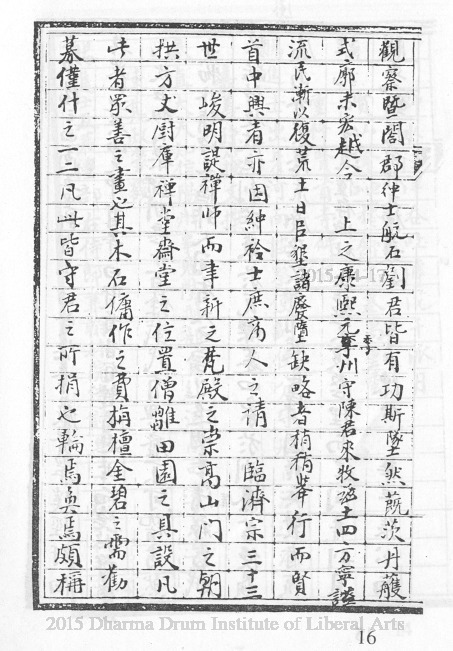 觀察暨閤郡紳士航石劉君皆有功斯墜然蔇茨丹雘
式廓未宏越今 上之康熙元季州守陳君來牧茲土四方寧謐
流民漸以復荒土日臣墾諸廢墮缺略者稍稍舉行而賢
首中興者亦因紳衿士庶市人之請 臨濟宗三十三
世 峻明諟禪師而聿新之梵殿之崇高山門之朝
拱方丈厨庫禅堂齋堂之位置僧雛田園之具設凡
此者眾善之畫也其木石傭作之費旃檀金碧之需勸
募僅什之一二凡此皆守君之所捐也輪焉奐焉頗稱
2015 Dharma Drum Institute of Liberal Arts
16